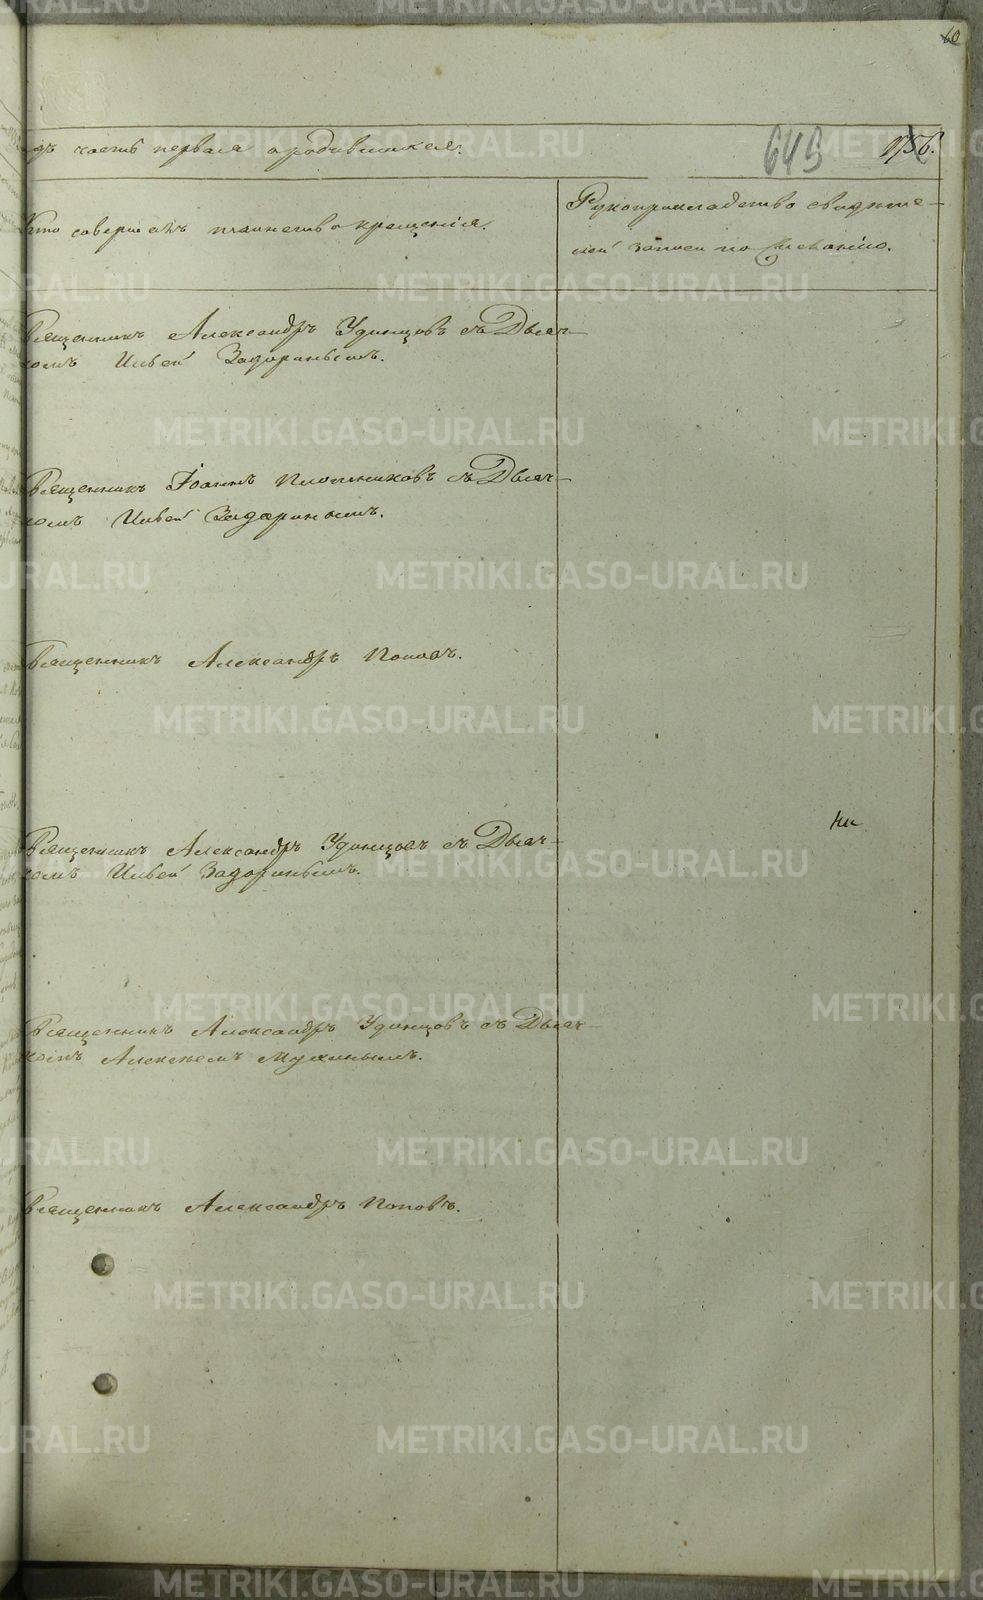 60
дъ часть первая о родившихся.
649
156.
Кто совершалъ таинство крещенія.
Рукоприкладство свидѣте-
лей записи по желанію.
Священникъ Александръ Удинцовъ съ Дьяч-
комъ Иліей Задоринымъ.
Священникъ Іоаннъ Плотниковъ съ Дьяч-
комъ Иліей Задоринымъ.
Священникъ Александръ Поповъ.
Священникъ Александръ Удинцовъ съ Дьяч-
комъ Иліей Задоринымъ.
Священникъ Александръ Удинцовъ съ Дьяч-
комъ Алексѣемъ Мухинымъ.
Священникъ Александръ Поповъ.
METRIKI.GASO-URAL.RU